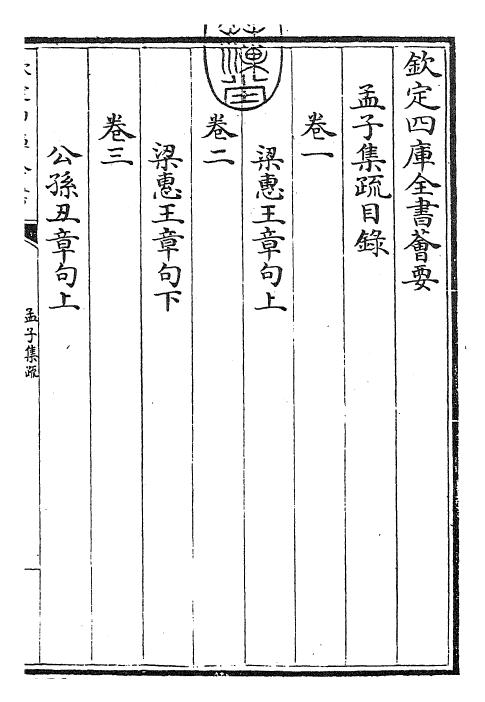 欽定四庫全書薈要
孟子集疏目錄
卷一
梁惠王章句上
卷二
梁惠王章句下
卷三
公孫丑章句上
孟子集疏